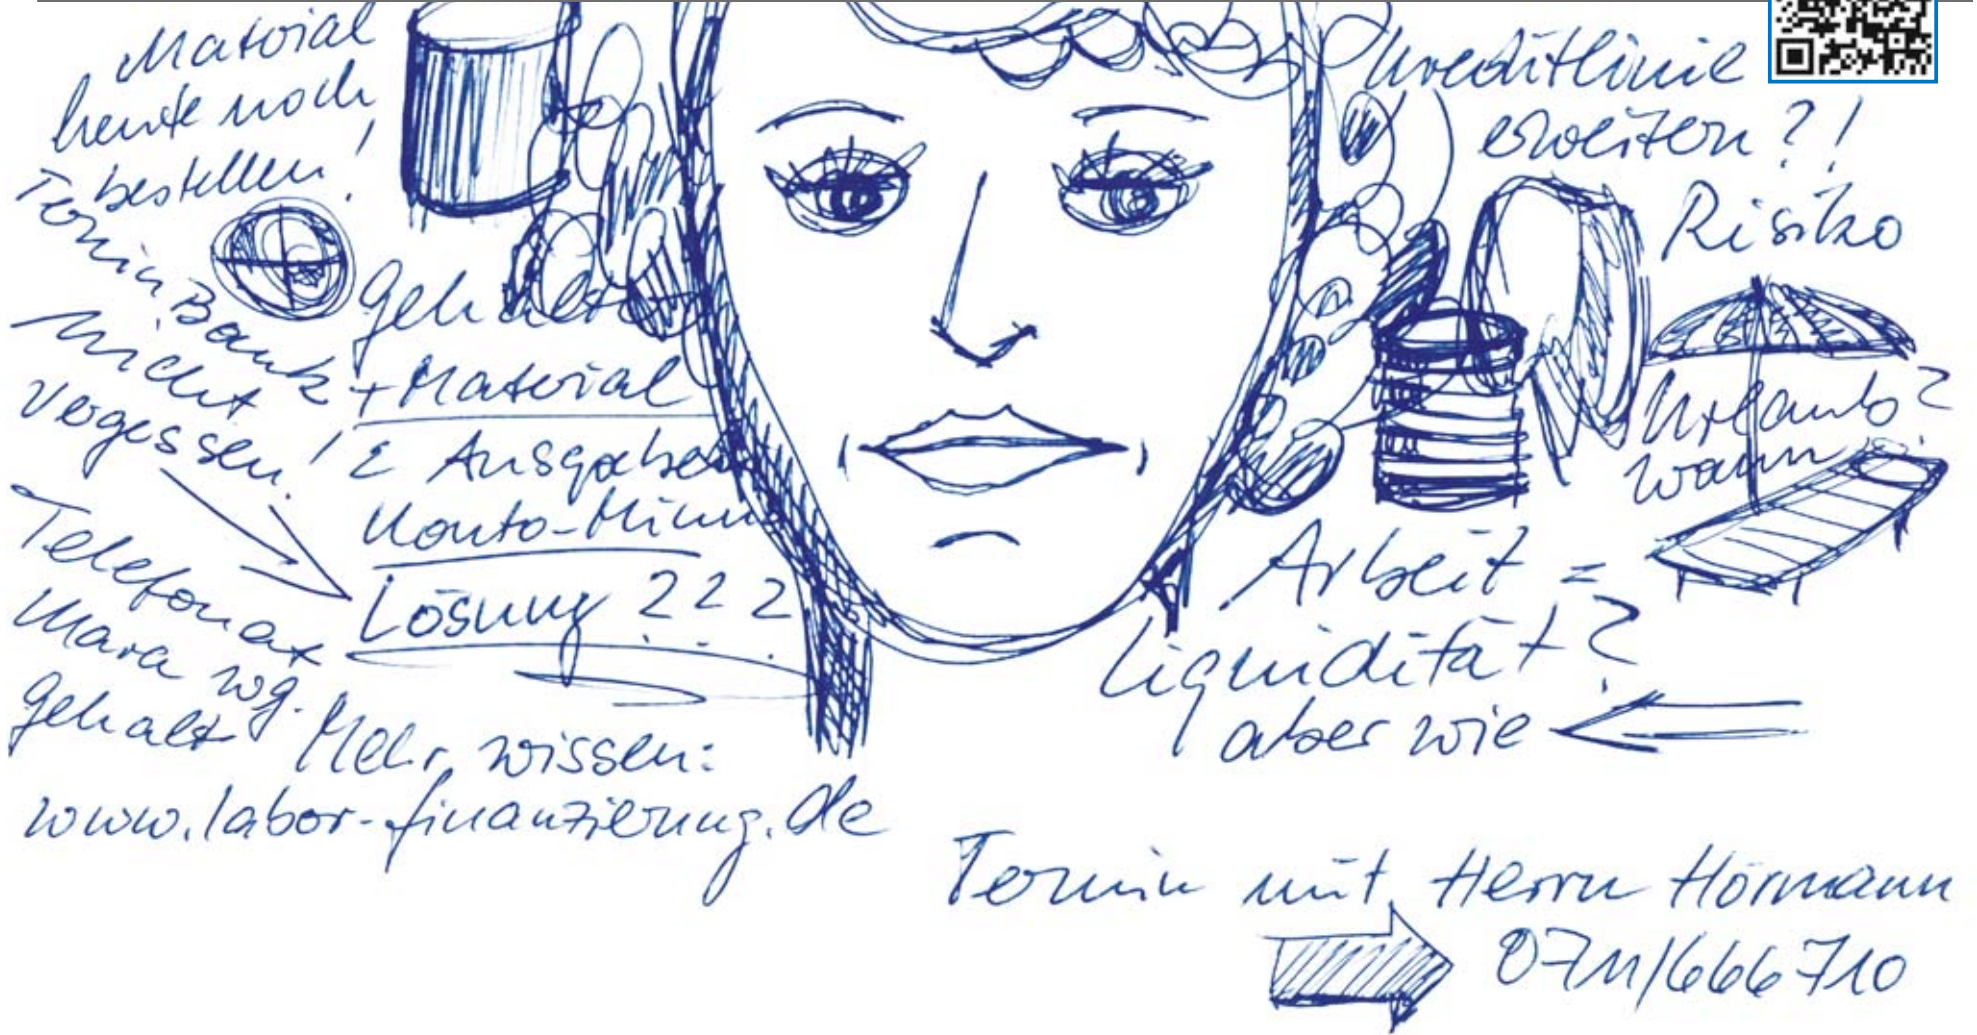 Material
heute noch
bestellen!
Termin Bank
nicht
vergessen!
Gehälter
+ Material
Σ Ausgaben
Konto-Minus
Lösung ???
Telefonat
Mara wg.
Gehalt
Mehr wissen:
www.labor-finanzierung.de
Kreditlinie
erweitern?!
Risiko
Urlaub?
wann
Arbeit =
Liquidität?
aber wie
Termin mit Herrn Hörmann
0711/666 710